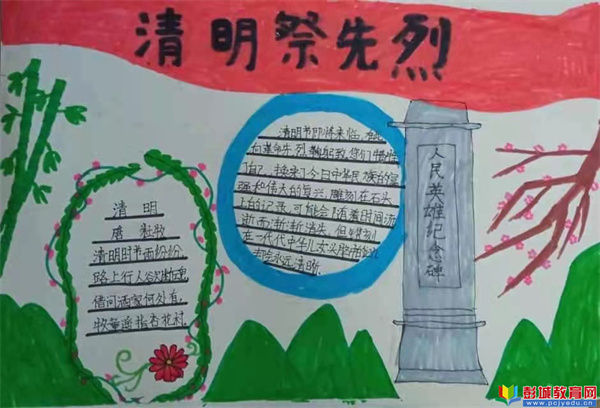 清明祭先烈
清明节即将来临，
向革命先烈鞠躬致敬，您们
换来了今日中华民族的
和伟大的复兴，雕刻在石头
上的记录，可能会随着时间流
逝而渐渐消失，但
在一代代中华儿女心
永远清晰。
人民英雄纪念碑
清明
唐
清明时节雨纷纷，
路上行人欲断魂
借问酒家何处有，
牧童遥指杏花村。
彭城教育网
www.pcjyedu.cn